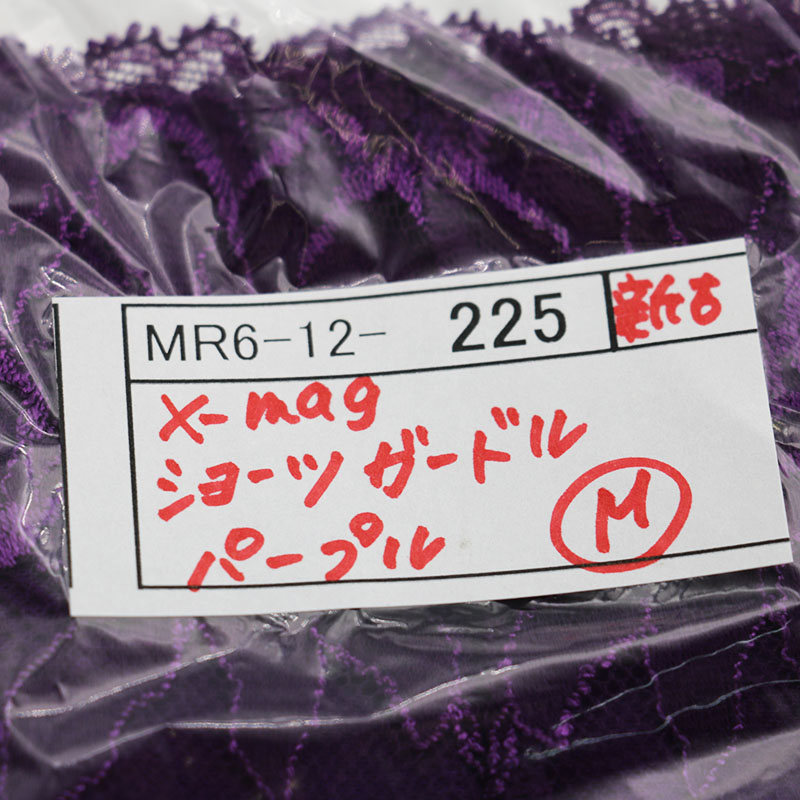 MR6-12- 225 新古
X-mag
ショーツガードル
パープル M